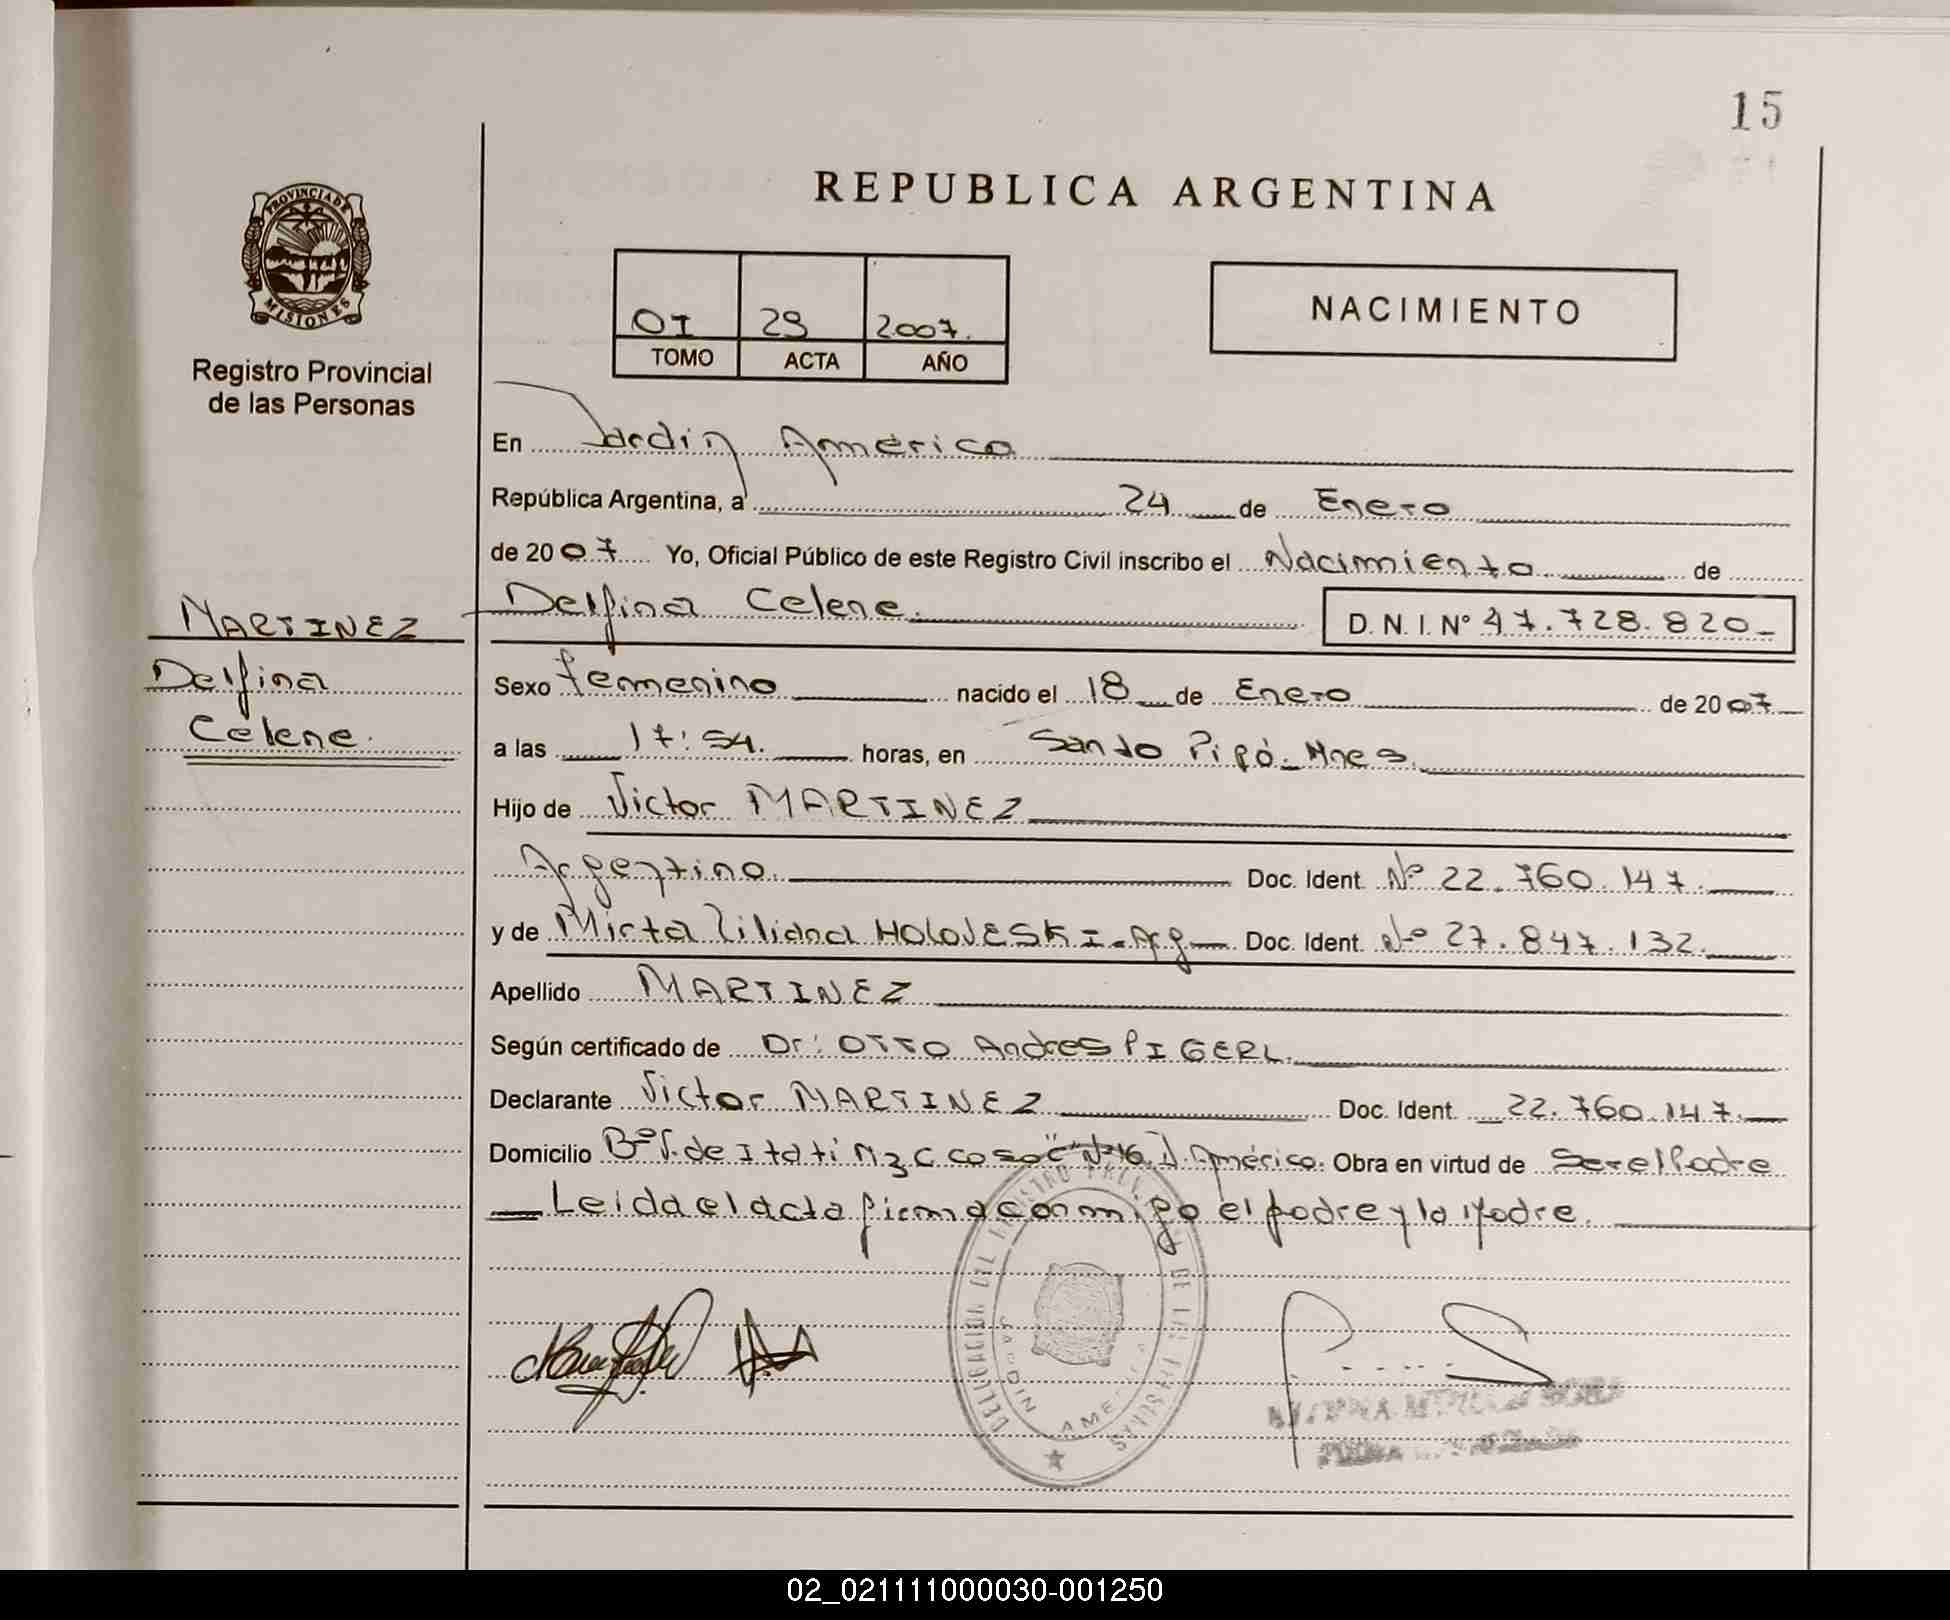 15
REPUBLICA ARGENTINA
PROVINCIA DE
MISIONES
Registro Provincial
de las Personas
OI 29 2007.
TOMO ACTA AÑO
NACIMIENTO
En Jardin América
República Argentina, a 24 de Enero
de 2007 Yo, Oficial Público de este Registro Civil inscribo el Nacimiento de
Delfina Celene. D. N. I. N° 47.728.820-
MARTINEZ
Delfina
Celene.
Sexo femenino nacido el 18 de Enero de 2007
a las 17:54. horas, en Santo Pipó - Mnes.
Hijo de Victor MARTINEZ
Argentino. Doc. Ident. Nº 22.760.147.
y de Mirta Liliana HOLOVESKI - Arg Doc. Ident. Nº 27.847.132.
Apellido MARTINEZ
Según certificado de Dr: OTTO Andres PIGERL.
Declarante Victor MARTINEZ Doc. Ident. 22.760.147.
Domicilio Bº V. de Itatí Mz C casa "C" Nº 16 J. América. Obra en virtud de Ser el Padre
Leida el acta firma conmigo el padre y la Madre.
DELEGACION DEL REGISTRO PROV. DE LAS PERSONAS
JARDIN AMERICA
02_021111000030-001250